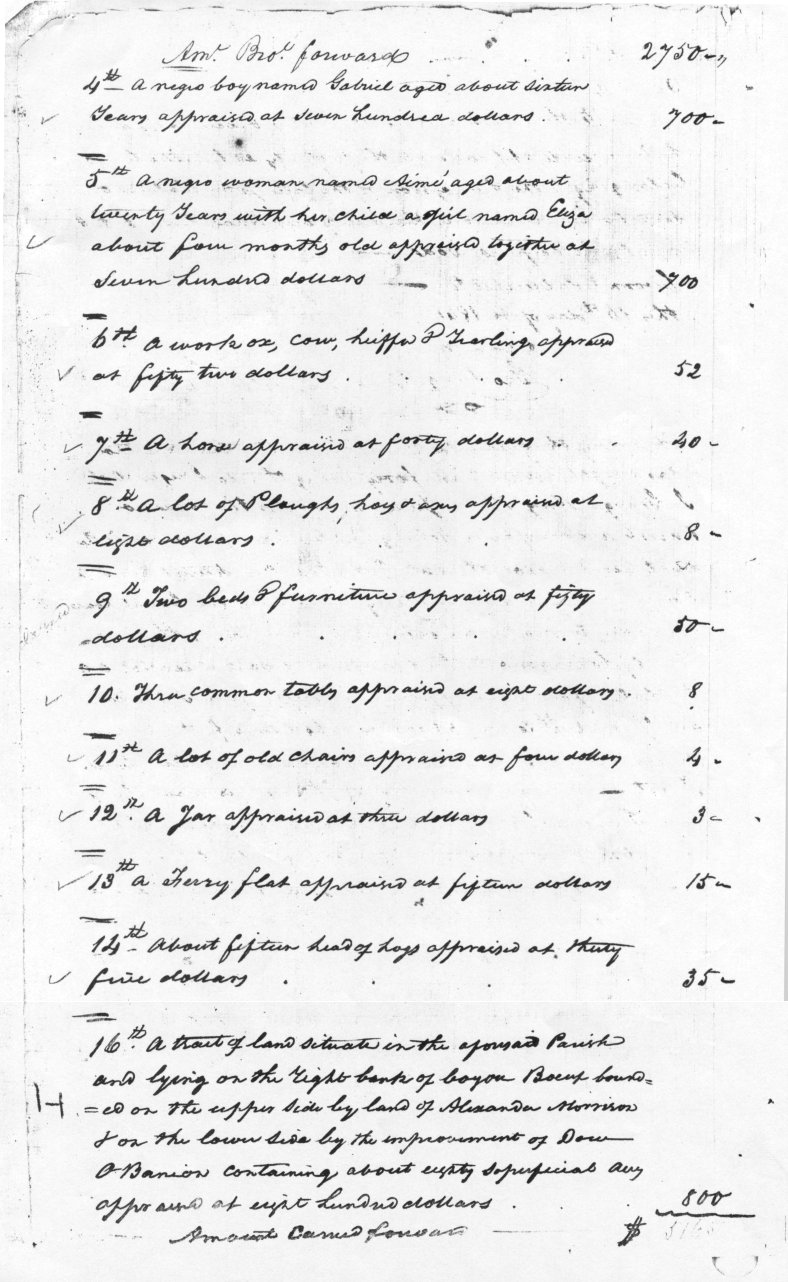 Amt. Brot. forward . . . 2750 -"
4th A negro boy named Gabriel aged about sixteen
Years appraised at seven hundred dollars . 700 -
5th A negro woman named Aimé, aged about
twenty Years with her child a girl named Eliza
about four months old appraised together at
Seven hundred dollars — 700
6th A work ox, cow, heiffer & Yearling appraised
at fifty two dollars . . . 52
7th A horse appraised at forty dollars . 40 -
8th A lot of Ploughs, hoes & axes appraised at
eight dollars . . 8 -
9th Two beds & furniture appraised at fifty
dollars . . . . 50 -
10. Three common tables appraised at eight dollars . 8
11th A lot of old chairs appraised at four dollars 4 -
12th. A Jar appraised at three dollars 3 -
13th A Ferry flat appraised at fifteen dollars 15 -
14th About fifteen head of hogs appraised at thirty
five dollars . . . 35 -
16th. A tract of land situate in the aforesaid Parish
and lying on the right bank of bayou Boeuf bound=
=ed on the upper side by land of Alexander Morrison
& on the lower side by the improvement of Dow
O Banion containing about eighty superficial acres
appraised at eight hundred dollars . . 800
Amount Carried forward — $